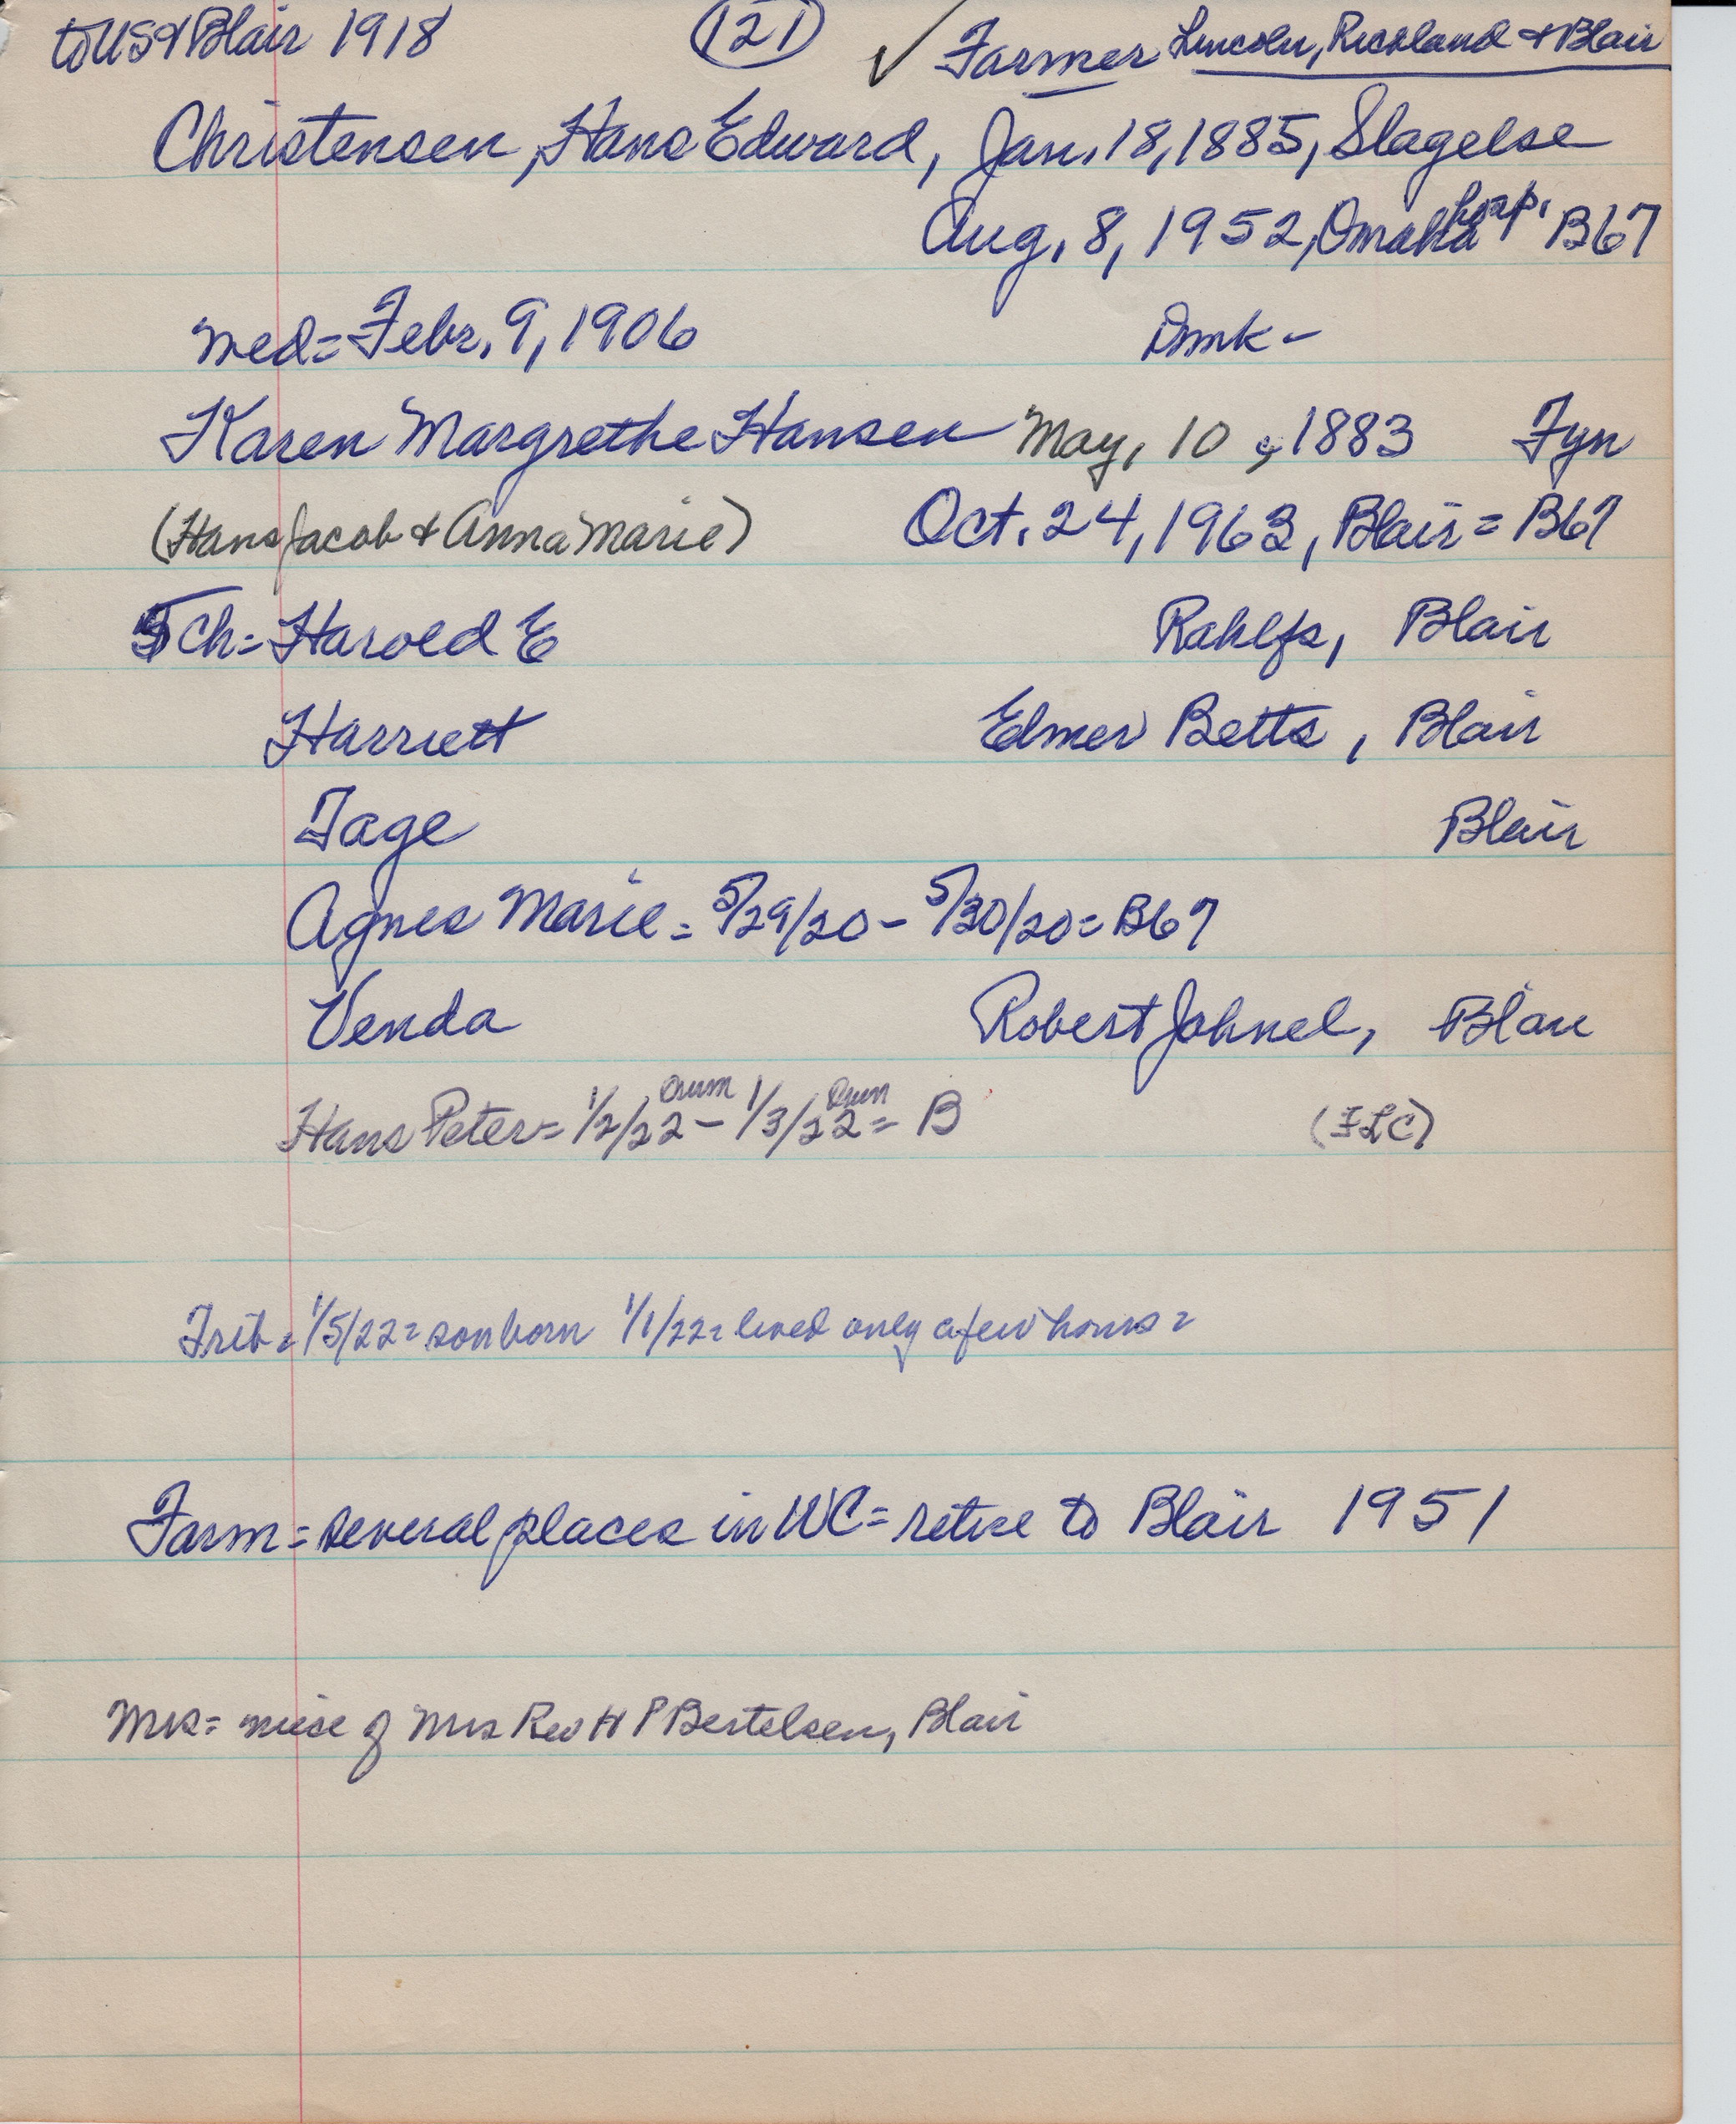 to US & Blair 1918 (121) ✓ Farmer Lincoln, Richland & Blair
Christensen, Hans Edward, Jan. 18, 1885, Slagelse
Aug. 8, 1952, Omaha hosp. B67
med = Febr. 9, 1906 Dmk -
Karen Margrethe Hansen May, 10, 1883 Fyn
(Hans Jacob & Anna Marie) Oct. 24, 1963, Blair = B67
5 ch = Harold E Rahlfs, Blair
Harriett Elmer Betts, Blair
Tage Blair
Agnes Marie = 5/29/20 - 5/30/20 = B67
Venda Robert Johnel, Blair
Hans Peter = 1/2/22 Orum - 1/3/22 Orum = B (FLC)
Trib = 1/5/22 = son born 1/1/22 = lived only a few hours =
Farm = several places in WC = retire to Blair 1951
Mrs = niece of Mrs Rev H P Bertelsen, Blair